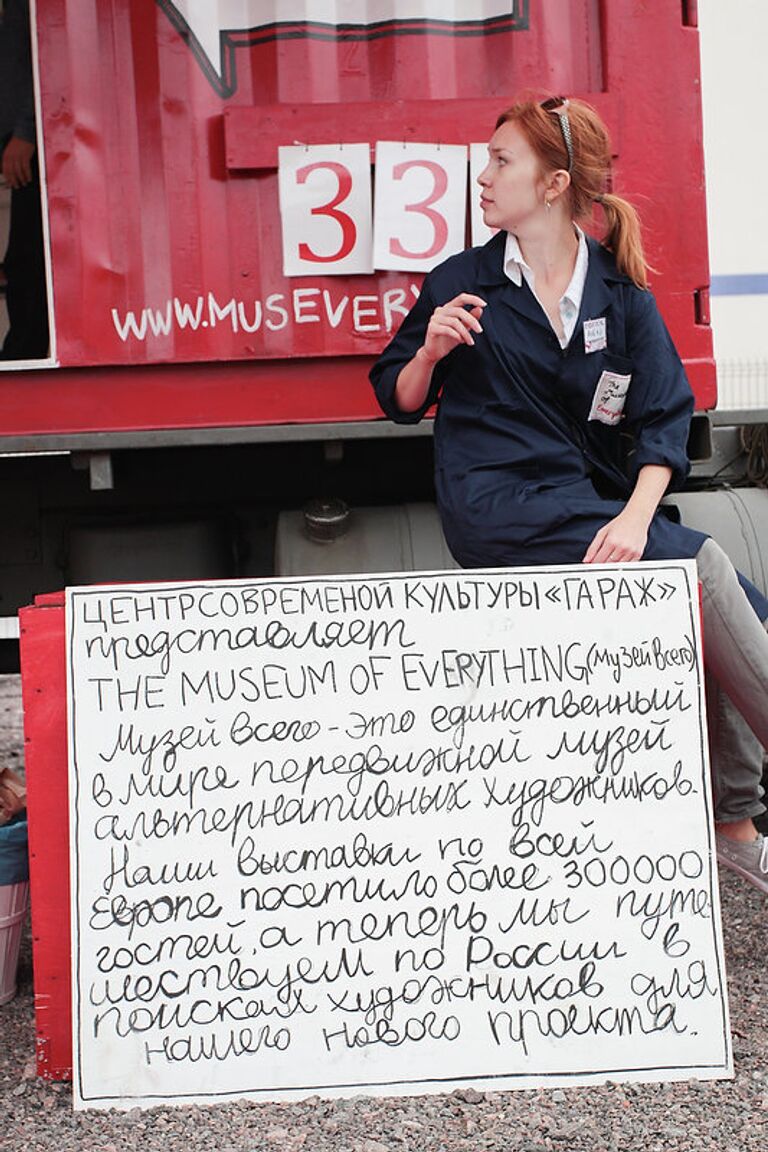 33
WWW.MUSEVERY
The
Museum
of
Everything
ЦЕНТР СОВРЕМЕНОЙ КУЛЬТУРЫ «ГАРАЖ»
представляет
THE MUSEUM OF EVERYTHING (музей всего)
Музей всего - это единственный
в мире передвижной музей
альтернативных художников.
Наши выставки по всей
Европе посетило более 300000
гостей, а теперь мы путе-
шествуем по России в
поисках художников для
нашего нового проекта.